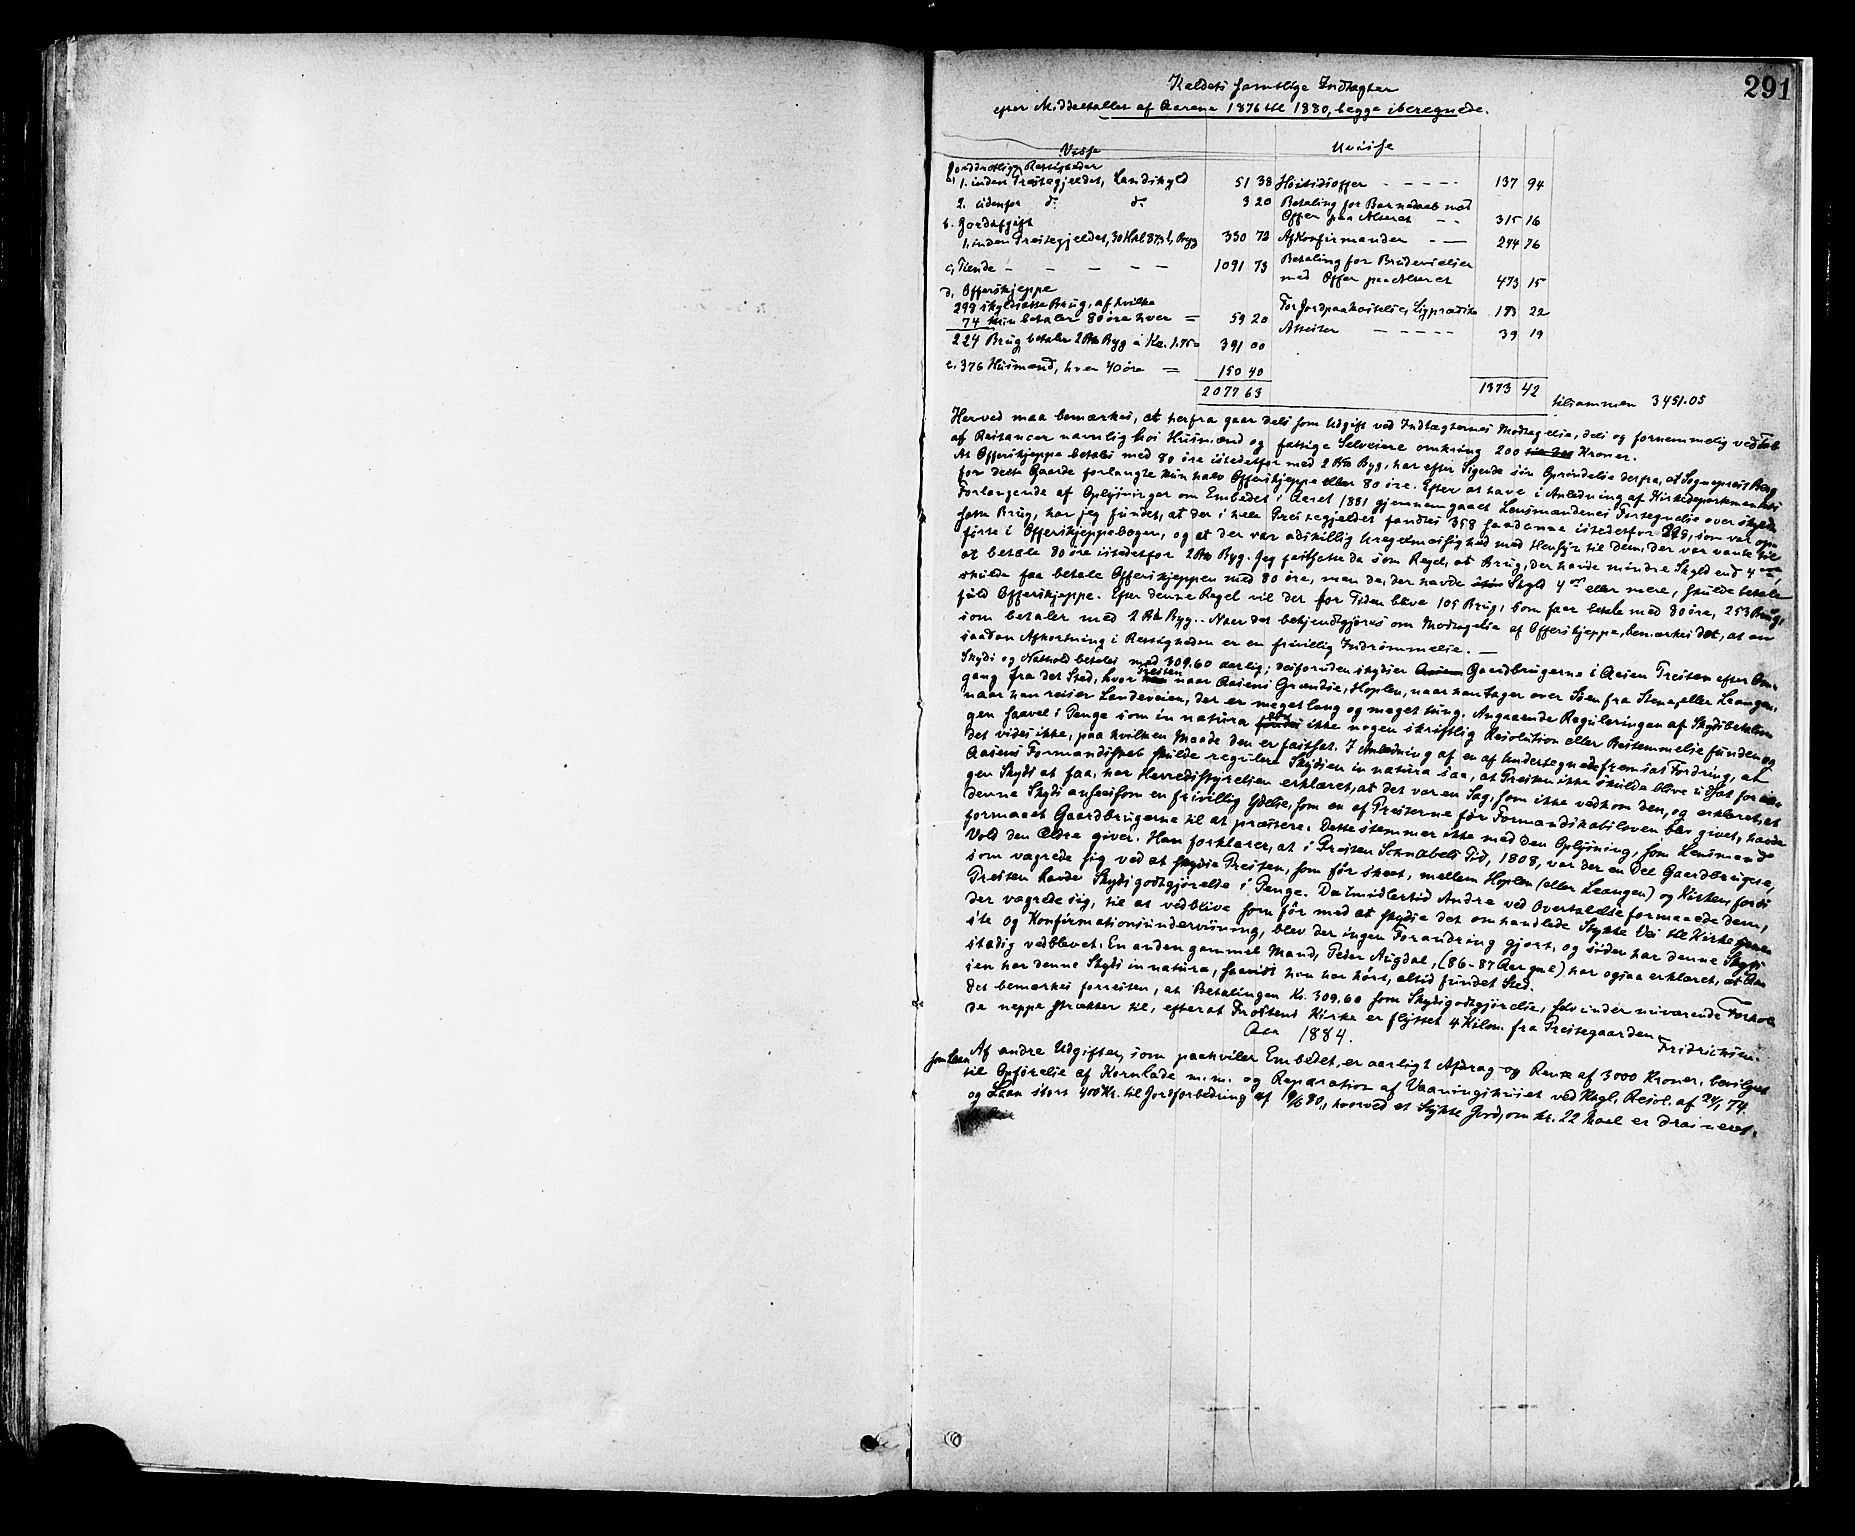 291
Kaldets samtlige Indtægter
efter Middeltallet af Aarene 1876 til 1880, begge iberegnede.
Visse
Uvisse
Jorddrotlige Rettigheder
a) 1. inden Præstegjeldet, Landskyld 51 38
2. udenfor do. do. 3 20
b. Jordafgift
1. inden Præstegjeldet, 30 Hkl 87 3/4 l, Byg 330 72
c, Tiende - - - - - 1091 73
d, Offerskjeppe
298 skyldsatte Brug, af hvilke
74 kun betaler 80 öre hver = 59 20
224 Brug betaler 2 Btr Byg a Kr. 1.75= 391 00
e. 376 Husmænd, hver 40 öre = 150 40
2077 63
Höitidsoffer - - - - - 137 94
Betaling for Barnedaab med
Offer paa Alteret - - 315 16
Af Konfirmander - - 244 76
Betaling for Brudevielser
med Offer paa Alteret 473 15
For Jordpaakastelse, Ligprædik 183 22
Attester - - - - - 39 19
1373 42
tilsammen 3451.05
Herved maa bemærkes, at herfra gaar dels som Udgift ved Indtægternes Modtagelse, dels og fornemmelig ved Tab
af Restancer navnlig hos Husmænd og fattige Selveiere omkring 200 Kroner.
At Offerskjeppe betales med 80 öre istedetfor med 2 Btr Byg, har efter Sigende sin Oprindelse derfra, at Sogneprest Berg
for dette Gaarde forlangte kun halv Offerskjeppe eller 80 öre. Efter at have i Anledning af Kirkedepartementets
Forlangende af Oplysninger om Embedet i Aaret 1881 gjennemgaaet Lensmændenes Fortegnelse over skyld-
satte Brug, har jeg fundet, at der i hele Præstegjeldet fandtes 358 saadanne istedetfor 298, som var opn
förte i Offerskjeppebogen, og at der var adskillig Uregelmæssighed med Hensyn til dem, der var vante til
at betale 80 öre istedetfor 2 Btr Byg. Jeg fastsatte da som Regel, at Brug, der havde mindre Skyld end 4 ort,
skulde faa betale Offerskjeppen med 80 öre, men de, der havde Skyld 4 ort eller mere, skulde betale
fuld Offerskjeppe. Efter denne Regel vil der for Tiden blive 105 Brug, som faar betale med 80 öre, 253 Brug,
som betaler med 2 Btr Byg. - Naar det bekjendtgjöres om Modtagelse af Offerskjeppe, bemærkes det, at en
saadan Afkortning i Rettigheden er en frivillig Indrömmelse. -
Skyds og Nathold betales med 309.60 aarlig; desforuden skydser Gaardbrugerne i Aasen Præsten efter Om-
gang fra det Sted, hvor Præsten naar Aasens Grændse, Hoplen, naar han tager over Söen fra Stene, eller Leangen,
naar han reiser Landeveien, der er meget lang og meget tung. Angaaende Reguleringen af Skydsbetalin-
gen saavel i Penge som in natura er ikke nogen skriftlig Resolution eller Bestemmelse funden og
det vides ikke, paa hvilken Maade den er fastsat. I Anledning af en af Undertegnede fremsat Fordring, at
Aasens Formandskab skulde regulere Skydsen in natura saa, at Præsten ikke skulde blive udsat for in-
gen Skyds at faa, har Herredsstyrelsen erklæret, at det var en Sag, som ikke vedkom den, og erklæret, at
denne Skyds ansees som en frivillig Ydelse, som en af Præsterne för Formandskabsloven blev givet, havde
formaaet Gaardbrugerne til at præstere. Dette stemmer ikke med den Oplysning, som Lensmand
Vold den Ældre giver. Han forklarer, at i Præsten Schnabels Tid, 1808, var der en Del Gaardbrugere,
som vægrede sig ved at skydse Præsten, som för skeet, mellem Hoplen (eller Leangen) og Kirken fordi
Præsten havde Skydsgodtgjörelse i Penge. Da imidlertid Andre ved Overtalelse formaaede dem,
der vægrede sig, til at vedblive som för med at skydse det omhandlede Stykke Vei til Kirketjene-
ste og Konfirmationsundervisning, blev der ingen Forandring gjort, og siden har denne Skyds
stadig vedblevet. En anden gammel Mand, Peder Augdal, (86-87 Aar gml) har ogsaa erklæret, at Aa-
sen har denne Skyds in natura, saavidt han har hört, altid fundet Sted.
Det bemærkes forresten, at Betalingen Kr. 309.60 som Skydsgodtgjörelse, selv under nuværende Forhol-
de neppe strækker til, efterat Frostens Kirke er flyttet 4 Kilom. fra Præstegaarden.
Aasen 1884.
Fridrichsen.
som Laan
Af andre Udgifter, som paahviler Embedet, er aarligt Afdrag og Rente af 3000 Kroner, bevilget
til Opförelse af Kornlade m.m. og Reparation af Vaaningshuset ved Kngl. Resol. af 24/1 74
og Laan stort 400 Kr. til Jordforbedring af 19/6 80, hvorved et Stykke Jord, om kr. 22 Maal er draineret.